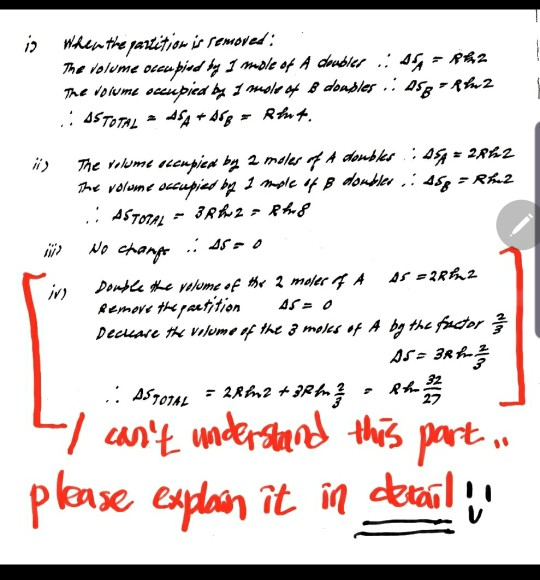 i) When the partition is removed:
The volume occupied by 1 mole of A doubles ∴ ΔS_A = R ln 2
The volume occupied by 1 mole of B doubles ∴ ΔS_B = R ln 2
∴ ΔS_TOTAL = ΔS_A + ΔS_B = R ln 4.
ii) The volume occupied by 2 moles of A doubles ∴ ΔS_A = 2R ln 2
The volume occupied by 1 mole of B doubles ∴ ΔS_B = R ln 2
∴ ΔS_TOTAL = 3R ln 2 = R ln 8
iii) No change ∴ ΔS = 0
iv) Double the volume of the 2 moles of A ΔS = 2R ln 2
Remove the partition ΔS = 0
Decrease the volume of the 3 moles of A by the factor 2/3
ΔS = 3R ln 2/3
∴ ΔS_TOTAL = 2R ln 2 + 3R ln 2/3 = R ln 32/27
I can't understand this part..
please explain it in detail!!